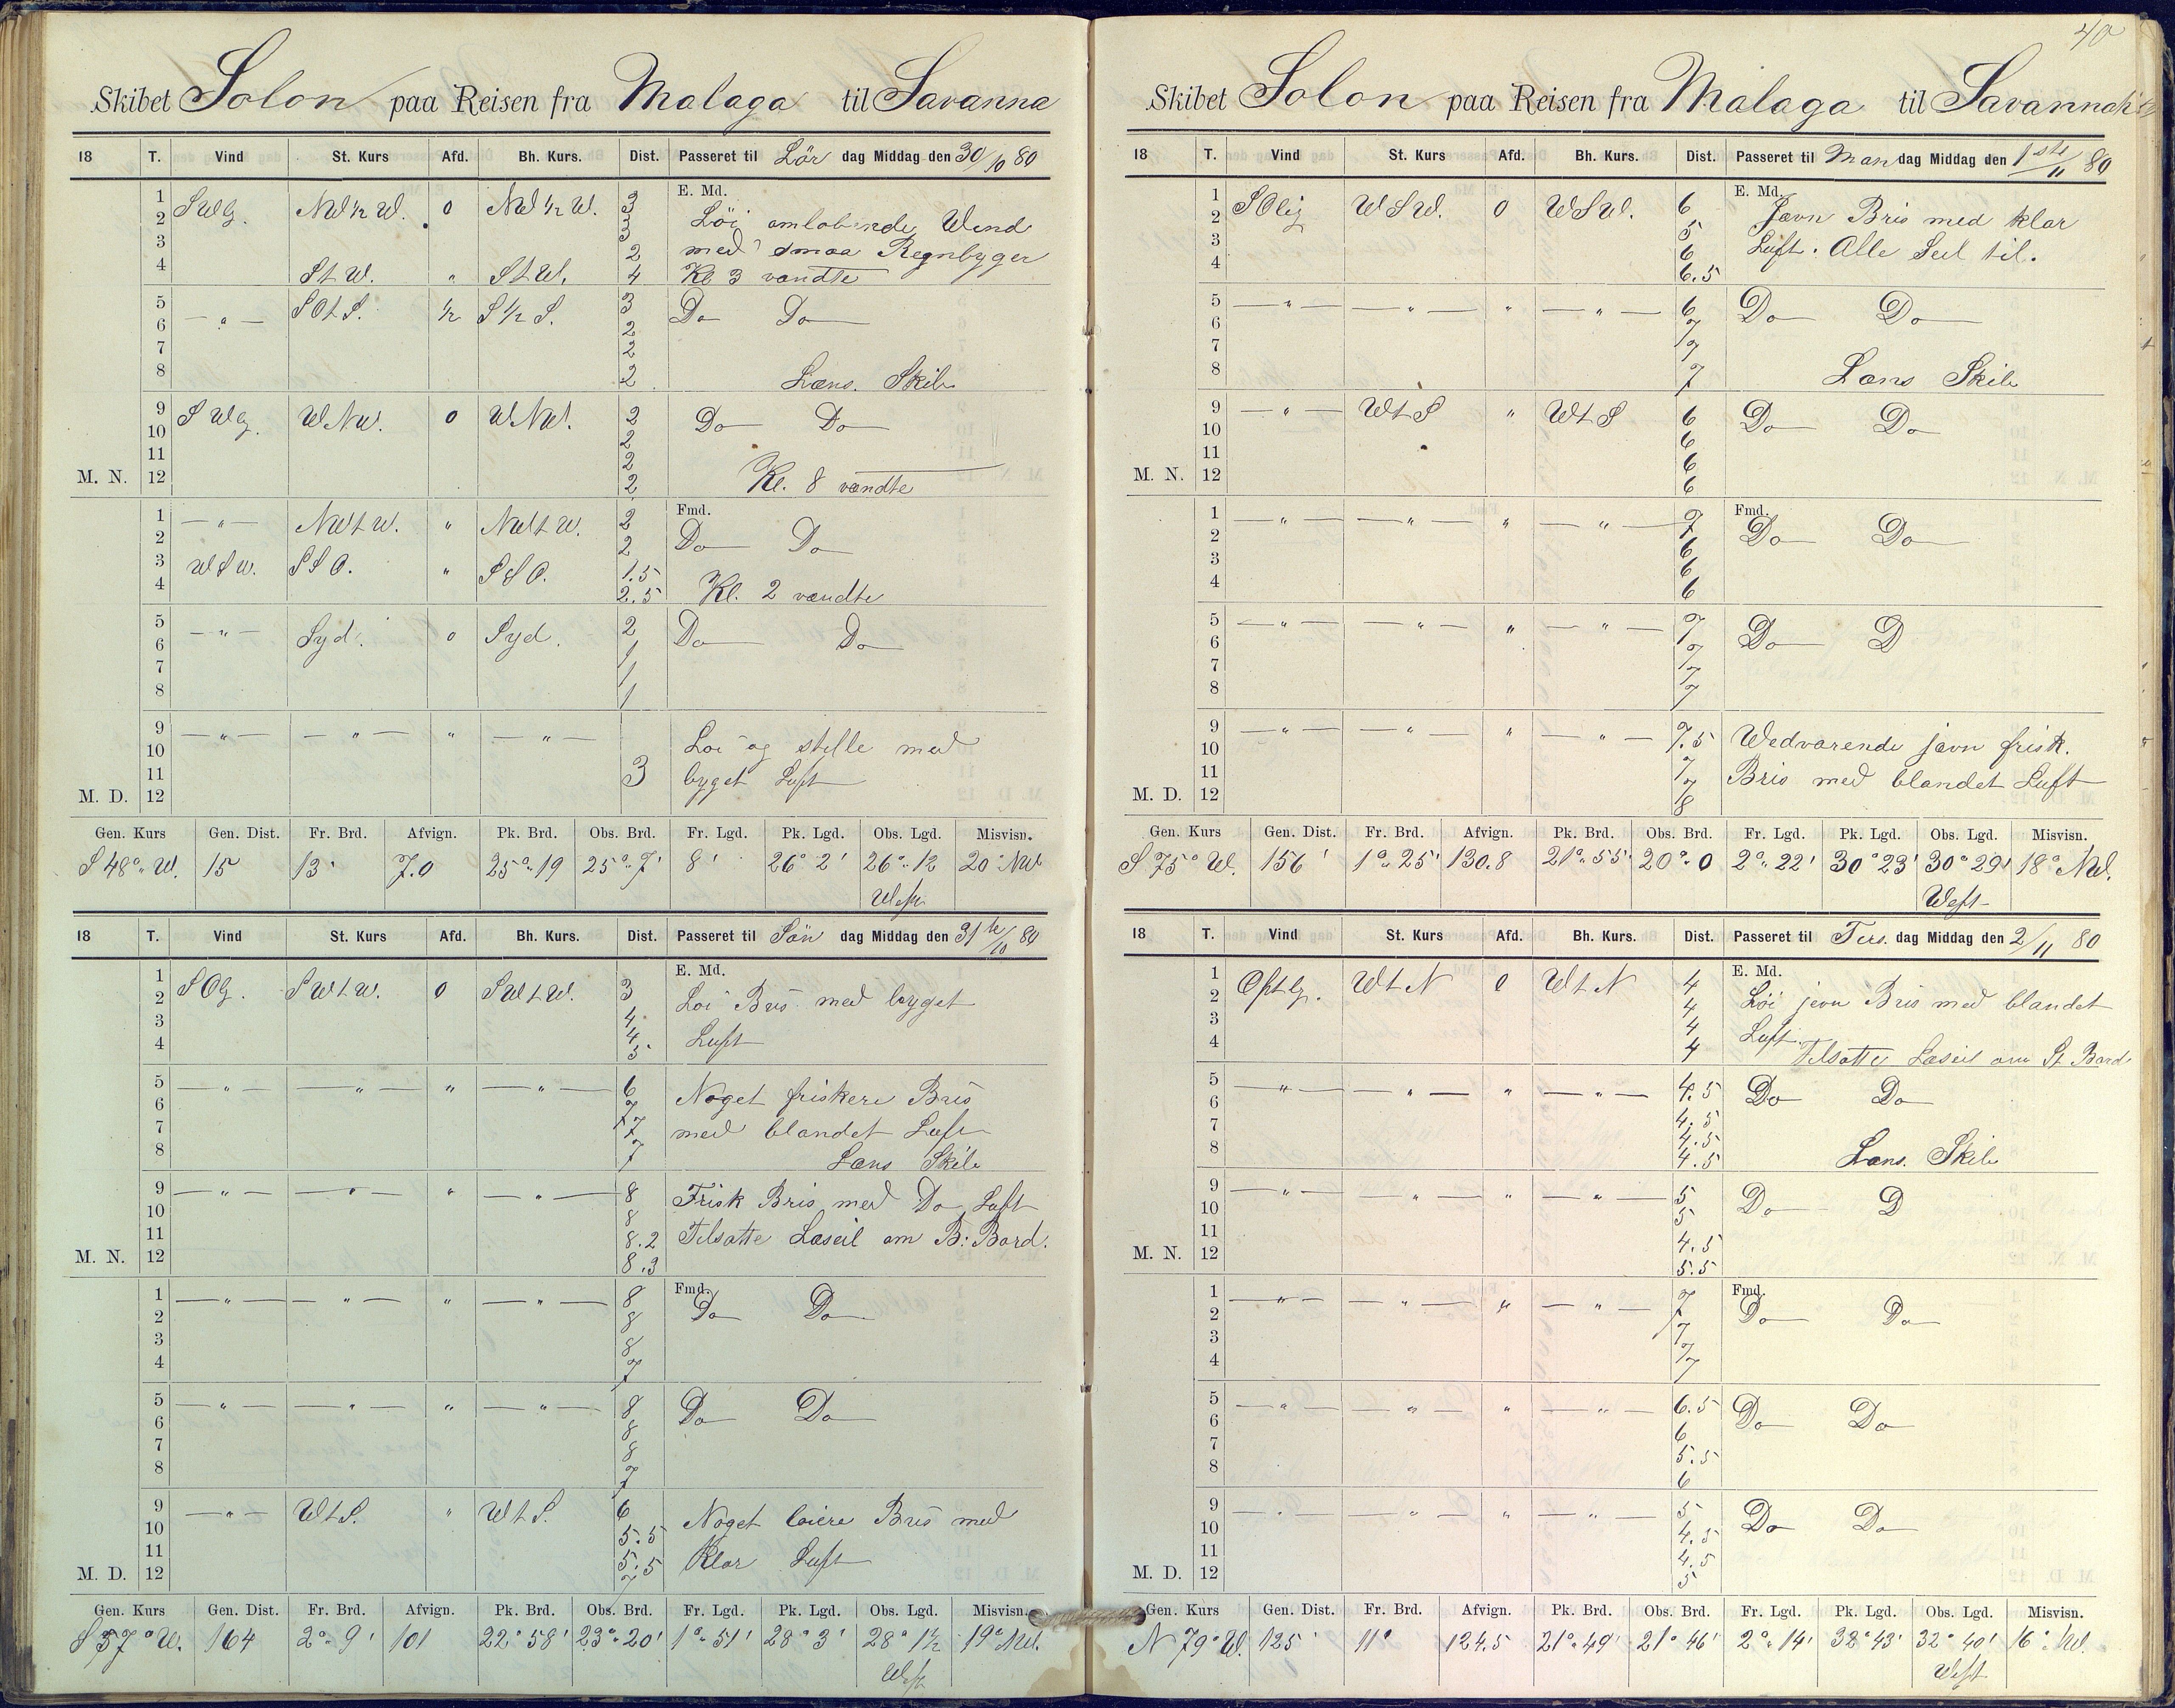 40
Skibet Solon paa Reisen fra Malaga til Savanna
18 T. Vind St. Kurs Afd. Bh. Kurs. Dist. Passeret til Lör dag Middag den 30/10 80
E. Md.
1 SWlg. NW 1/2 W. 0 NW 1/2 W. 3
2 3 Löi omlobende Wind
3 2 med smaa Regnbyger
4 StW. " StW. 4 Kl 3 vandte
5 — " — SOtS. 1/2 S 1/2 S. 3 Do Do
6 2
7 2
8 2 Læns. Skib
9 SWlg. WNW. 0 WNW. 2 Do Do
10 2
11 2
M. N. 12 2 Kl. 8 vandte
Fmd.
1 — " — NWtW. " NWtW. 2 Do Do
2 2
3 WSW. SSO. " SSO. 1.5
4 2.5 Kl. 2 vandte
5 — " — Syd. 0 Syd. 2 Do Do
6 1
7 1
8 1
9 — " — — " — " — " — Loi og stille med
10
11 3 byget Luft
M. D. 12
Gen. Kurs Gen. Dist. Fr. Brd. Afvign. Pk. Brd. Obs. Brd. Fr. Lgd. Pk. Lgd. Obs. Lgd. Misvisn.
S 48° W. 15 13' 7.0 25° 19 25° 7' 8' 26° 2' 26° 1/2 20° NW
West
18 T. Vind St. Kurs Afd. Bh. Kurs. Dist. Passeret til Sön dag Middag den 31te/10 80
E. Md.
1 SOlg. SWtW. 0 SWtW. 3
2 4 Loi Bris med byget
3 4
4 5 Luft
5 — " — — " — " — " — 6 Noget friskere Bris
6 7
7 7 med blandet Luft
8 7 Læns Skib
9 — " — — " — " — " — 8 Frisk Bris med Do Luft
10 8
11 8.2 Tilsatte Læseil om B: Bord.
M. N. 12 8.3
Fmd.
1 — " — — " — " — " — 8 Do Do
2 8
3 8
4 7
5 — " — — " — " — " — 8 Do Do
6 8
7 8
8 7
9 — " — WtS. " WtS. 6 Noget loiere Bris med
10 5.5
11 5.5 Klar Luft
M. D. 12 7
Gen. Kurs Gen. Dist. Fr. Brd. Afvign. Pk. Brd. Obs. Brd. Fr. Lgd. Pk. Lgd. Obs. Lgd. Misvisn.
S 57° W. 164 2° 9' 101 22° 58' 23° 20' 1° 51' 28° 3' 28° 1 1/2 19° NW.
West
Skibet Solon paa Reisen fra Malaga til Savannah
18 T. Vind St. Kurs Afd. Bh. Kurs. Dist. Passeret til Man dag Middag den 1ste/11 80
E. Md.
1 SOlig WSW. 0 WSW. 6 Javn Bris med klar
2 5
3 6 Luft. Alle Seil til.
4 6.5
5 — " — — " — " — " — 6 Do Do
6 7
7 7
8 7 Læns Skib
9 — " — WtS " WtS 6 Do Do
10 6
11 6
M. N. 12 6
Fmd.
1 — " — — " — " — " — 7 Do Do
2 6
3 6
4 6
5 — " — — " — " — " — 7 Do D
6 7
7 7
8 7
9 — " — — " — " — " — 7.5 Wedvarende javn frisk.
10 7
11 7 Bris med blandet Luft
M. D. 12 8
Gen. Kurs Gen. Dist. Fr. Brd. Afvign. Pk. Brd. Obs. Brd. Fr. Lgd. Pk. Lgd. Obs. Lgd. Misvisn.
S 75° W. 156' 1° 25' 130.8 21° 55' 20° 0 2° 22' 30° 23' 30° 29' 18° NW.
West
18 T. Vind St. Kurs Afd. Bh. Kurs. Dist. Passeret til Tirs. dag Middag den 2/11 80
E. Md.
1 Ostlg. WtN 0 WtN 4
2 4 Löi jevn Bris med blandet
3 4 Luft.
4 4 Tilsatte Læseil om St. Bord
5 — " — — " — " — " — 4.5 Do Do
6 4.5
7 4.5
8 4.5 Læns. Skib
9 — " — — " — " — " — 5 Do D
10 5
11 4.5
M. N. 12 5.5
Fmd.
1 — " — — " — " — " — 7 Do Do
2 7
3 7
4 7
5 — " — — " — " — " — 6.5 Do Do
6 6
7 5.5
8 6
9 — " — — " — " — " — 5 Do Do
10 4.5
11 4.5
M. D. 12 5
Gen. Kurs Gen. Dist. Fr. Brd. Afvign. Pk. Brd. Obs. Brd. Fr. Lgd. Pk. Lgd. Obs. Lgd. Misvisn.
N 79° W. 125' 11° 124.5 21° 49' 21° 46' 2° 14' 32° 43' 32° 40' 16° NW.
West